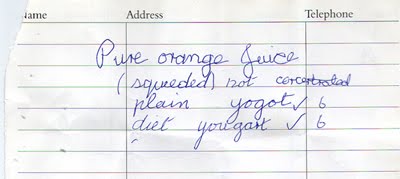 Name Address Telephone
Pure orange Juice
(squeeded) not concentrated
plain yogot ✓ 6
diet yougart ✓ 6